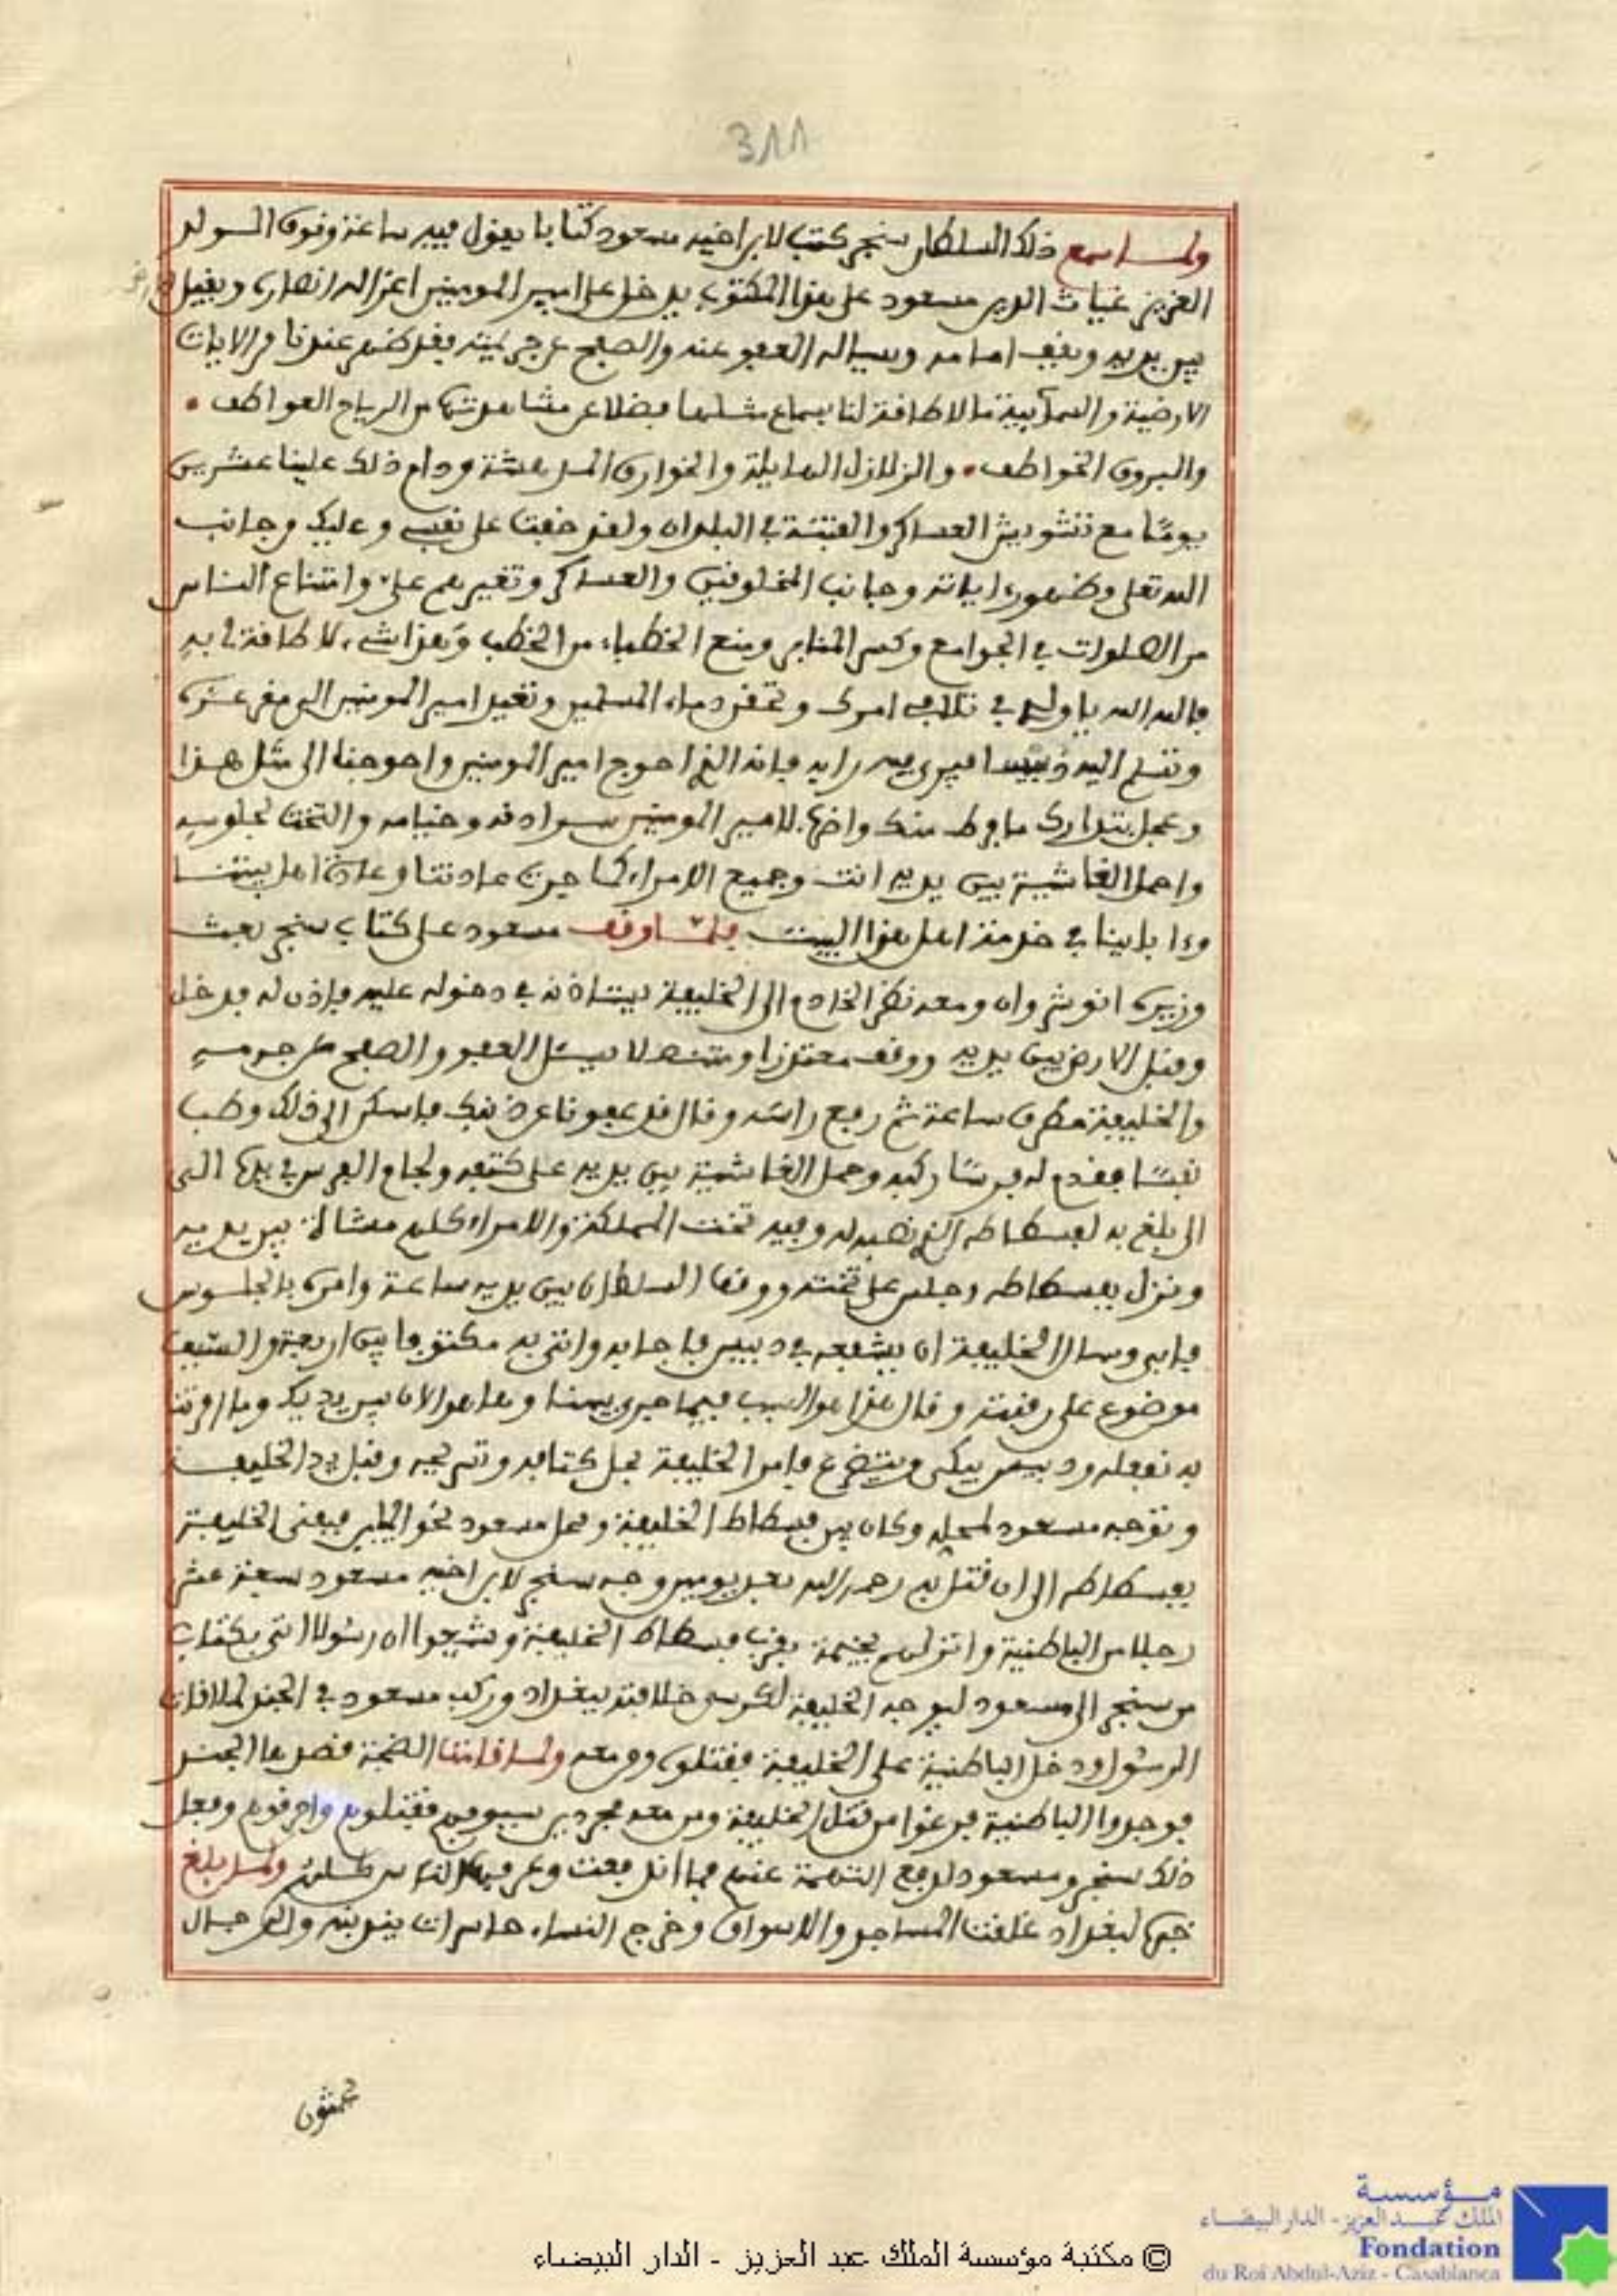 311
ولما سمع ذلك السلطان سنجر كتب لابن اخيه مسعود كتابا يقول فيه ساعة وقوف الولد
العزيز غياث الدين مسعود على هذا المكتوب يدخل على امير المومنين اعز الله انصاره ويقبل
بين يديه ويقف امامه ويساله العفو عنه والصفح عن جريمته فقد ظهر عندنا من الايات
الارضية والسمآيية ما لا طاقة لنا بسماع مثلها فضلا عن مشاهدتها من الرياح العواطف
والبروق الخواطف والزلازل الهايلة والخوارق المدهشة ودام ذلك علينا عشرين
يوما مع تشويش العساكر والفتنة في البلدان ولقد خفت على نفسي وعليك من جانب
الله تعلى وظهور اياته وجانب المخلوقين والعساكر وتغيرهم علي وامتناع الناس
من الصلوات في الجوامع وكسر المنابر ومنع الخطباء من الخطب وهذا شيء لا طاقة لي به
فالله الله يا ولدي في تلافي امرك وتحقن دماء المسلمين وتعيد امير المومنين الى مقر عزه
وتسلم اليه دبيسا ليرى فيه رايه فانه الذي احوج امير المومنين واحوجنا الى مثل هذا
وعجل بتدارك ما فرط منك واضرب لامير المومنين سرادقه وخيامه والتخت لجلوسه
واحمل الغاشية بين يديه انت وجميع الامراء كما جرت عادتنا وعادة اهل بيتنا
وءاباينا في خدمة اهل هذا البيت فلما وقف مسعود على كتاب سنجر بعث
وزيره انوشروان ومعه نظر الخادم الى الخليفة يستاذنه في دخوله عليه فاذن له فدخل
وقبل الارض بين يديه ووقف معتذرا ومتنصلا يسئل العفو والصفح عن جرمه
والخليفة مطرق ساعة ثم رفع راسه وقال قد عفونا عن ذنبك فاسكن الى ذلك وطب
نفسا فقدم له فرسا ركبه وحمل الغاشية بين يديه على كتفه ولجام الفرس في يده الى
الى بلغ به لفسطاطه الذي نصبه له وفيه تخت المملكة والامراء كلهم مشاة بين يديه
ونزل بفسطاطه وجلس على تخته ووقف السلطان بين يديه ساعة وامره بالجلوس
فابى وسال الخليفة ان يشفعه في دبيس فاجابه واتى به مكتوفا بين اربعة والسيف
موضوع على رقبته وقال هذا هو السبب فيما جرى بيننا وها هو الان بين يديك وما امرتنا
به نفعله ودبيس يبكي ويتضرع فامر الخليفة بحل كتافه وتسريحه وقبل يد الخليفة
وتوجه مسعود لمحله وكان بين فسطاط الخليفة ومحل مسعود نحو الميل فبقى الخليفة
بفسطاطه الى ان فتك به رحمه الله بعد يومين وجه سنجر لابن اخيه مسعود سبعة عشر
رجلا من الباطنية وانزلهم بخيمة بقرب فسطاط الخليفة وشيعوا ان رسولا اتى بكتاب
من سنجر الى مسعود ليوجه الخليفة لكرسي خلافته ببغداد وركب مسعود في الجند لملاقات
الرسول ودخل الباطنية على الخليفة فقتلوه ومن معه ولما قامت الضجة قصدها الجند
فوجدوا الباطنية فرغوا من قتل الخليفة ومن معه مجردين سيوفهم فقتلوهم واحرقوهم وفعل
ذلك سنجر ومسعود لدفع التهمة عنهم فما اندفعت وعرفها الناس كلهم ولما بلغ
خبره لبغداد غلقت المساجد والاسواق وخرج النساء حاسرات يندبنه والرجال
يحثون
مؤسسة
الملك عبد العزيز - الدار البيضاء
Fondation
du Roi Abdul-Aziz - Casablanca
© مكتبة مؤسسة الملك عبد العزيز - الدار البيضاء